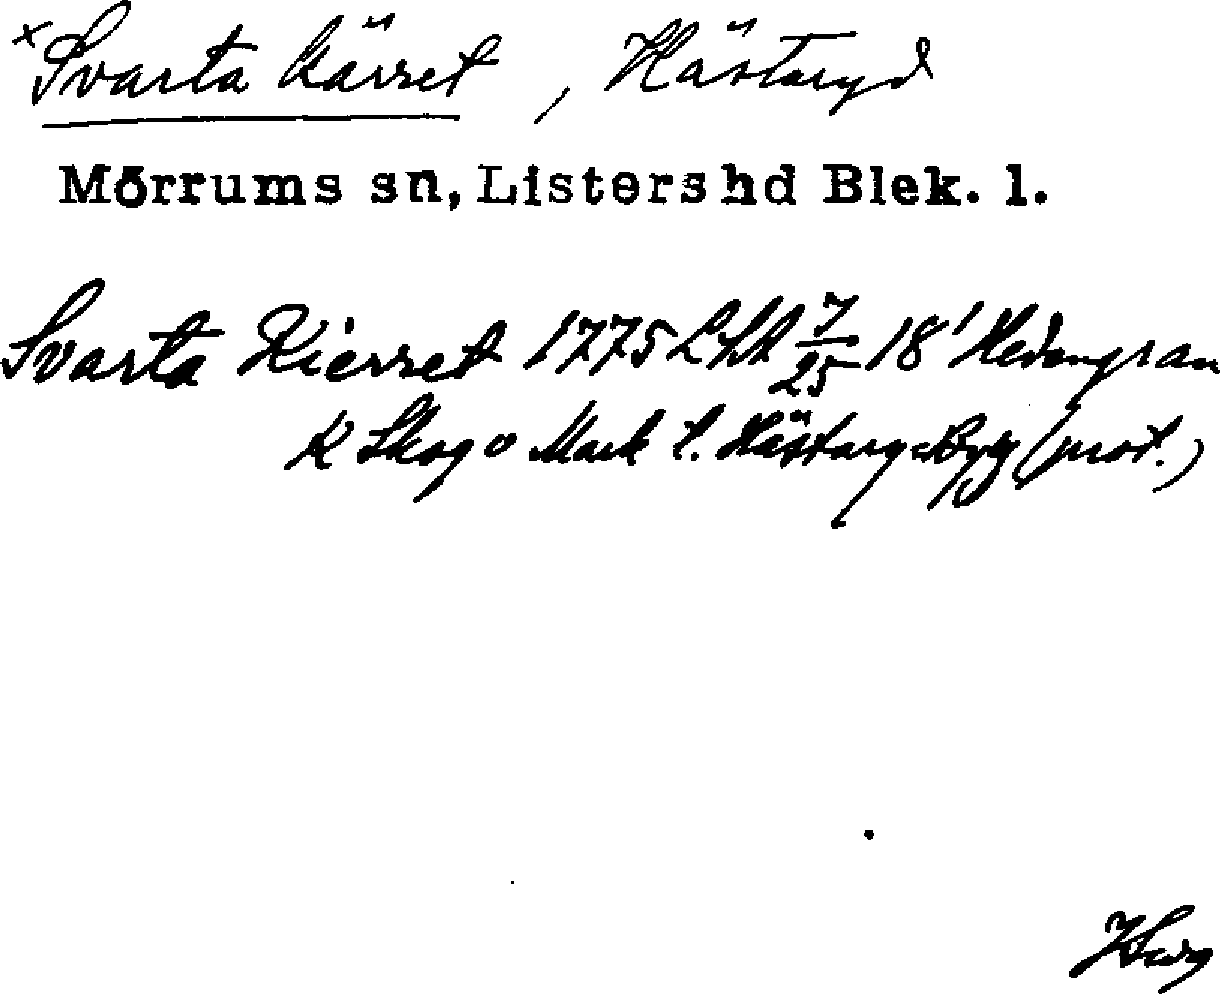 x Svarta kärret, Hästaryd
Mörrums sn, Listers hd Blek. l.
Svarta Kierret 1775 LSA 7/25 18'
K Skog o Mark t. Hästary By (prot.)